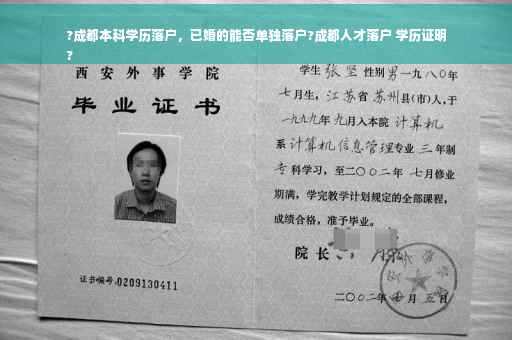 ?成都本科学历落户，已婚的能否单独落户?成都人才落户 学历证明
?
西安外事学院
毕业证书
证书编号:0209130411
学生 张坚 性别男 一九八〇年
七月生，江苏省 苏州县(市)人，于
一九九九年九月入本院 计算机
系 计算机信息管理专业 三年制
专科学习，至二〇〇二年 七月修业
期满，学完教学计划规定的全部课程，
成绩合格，准予毕业。
院长
二〇〇二年 七月 五日